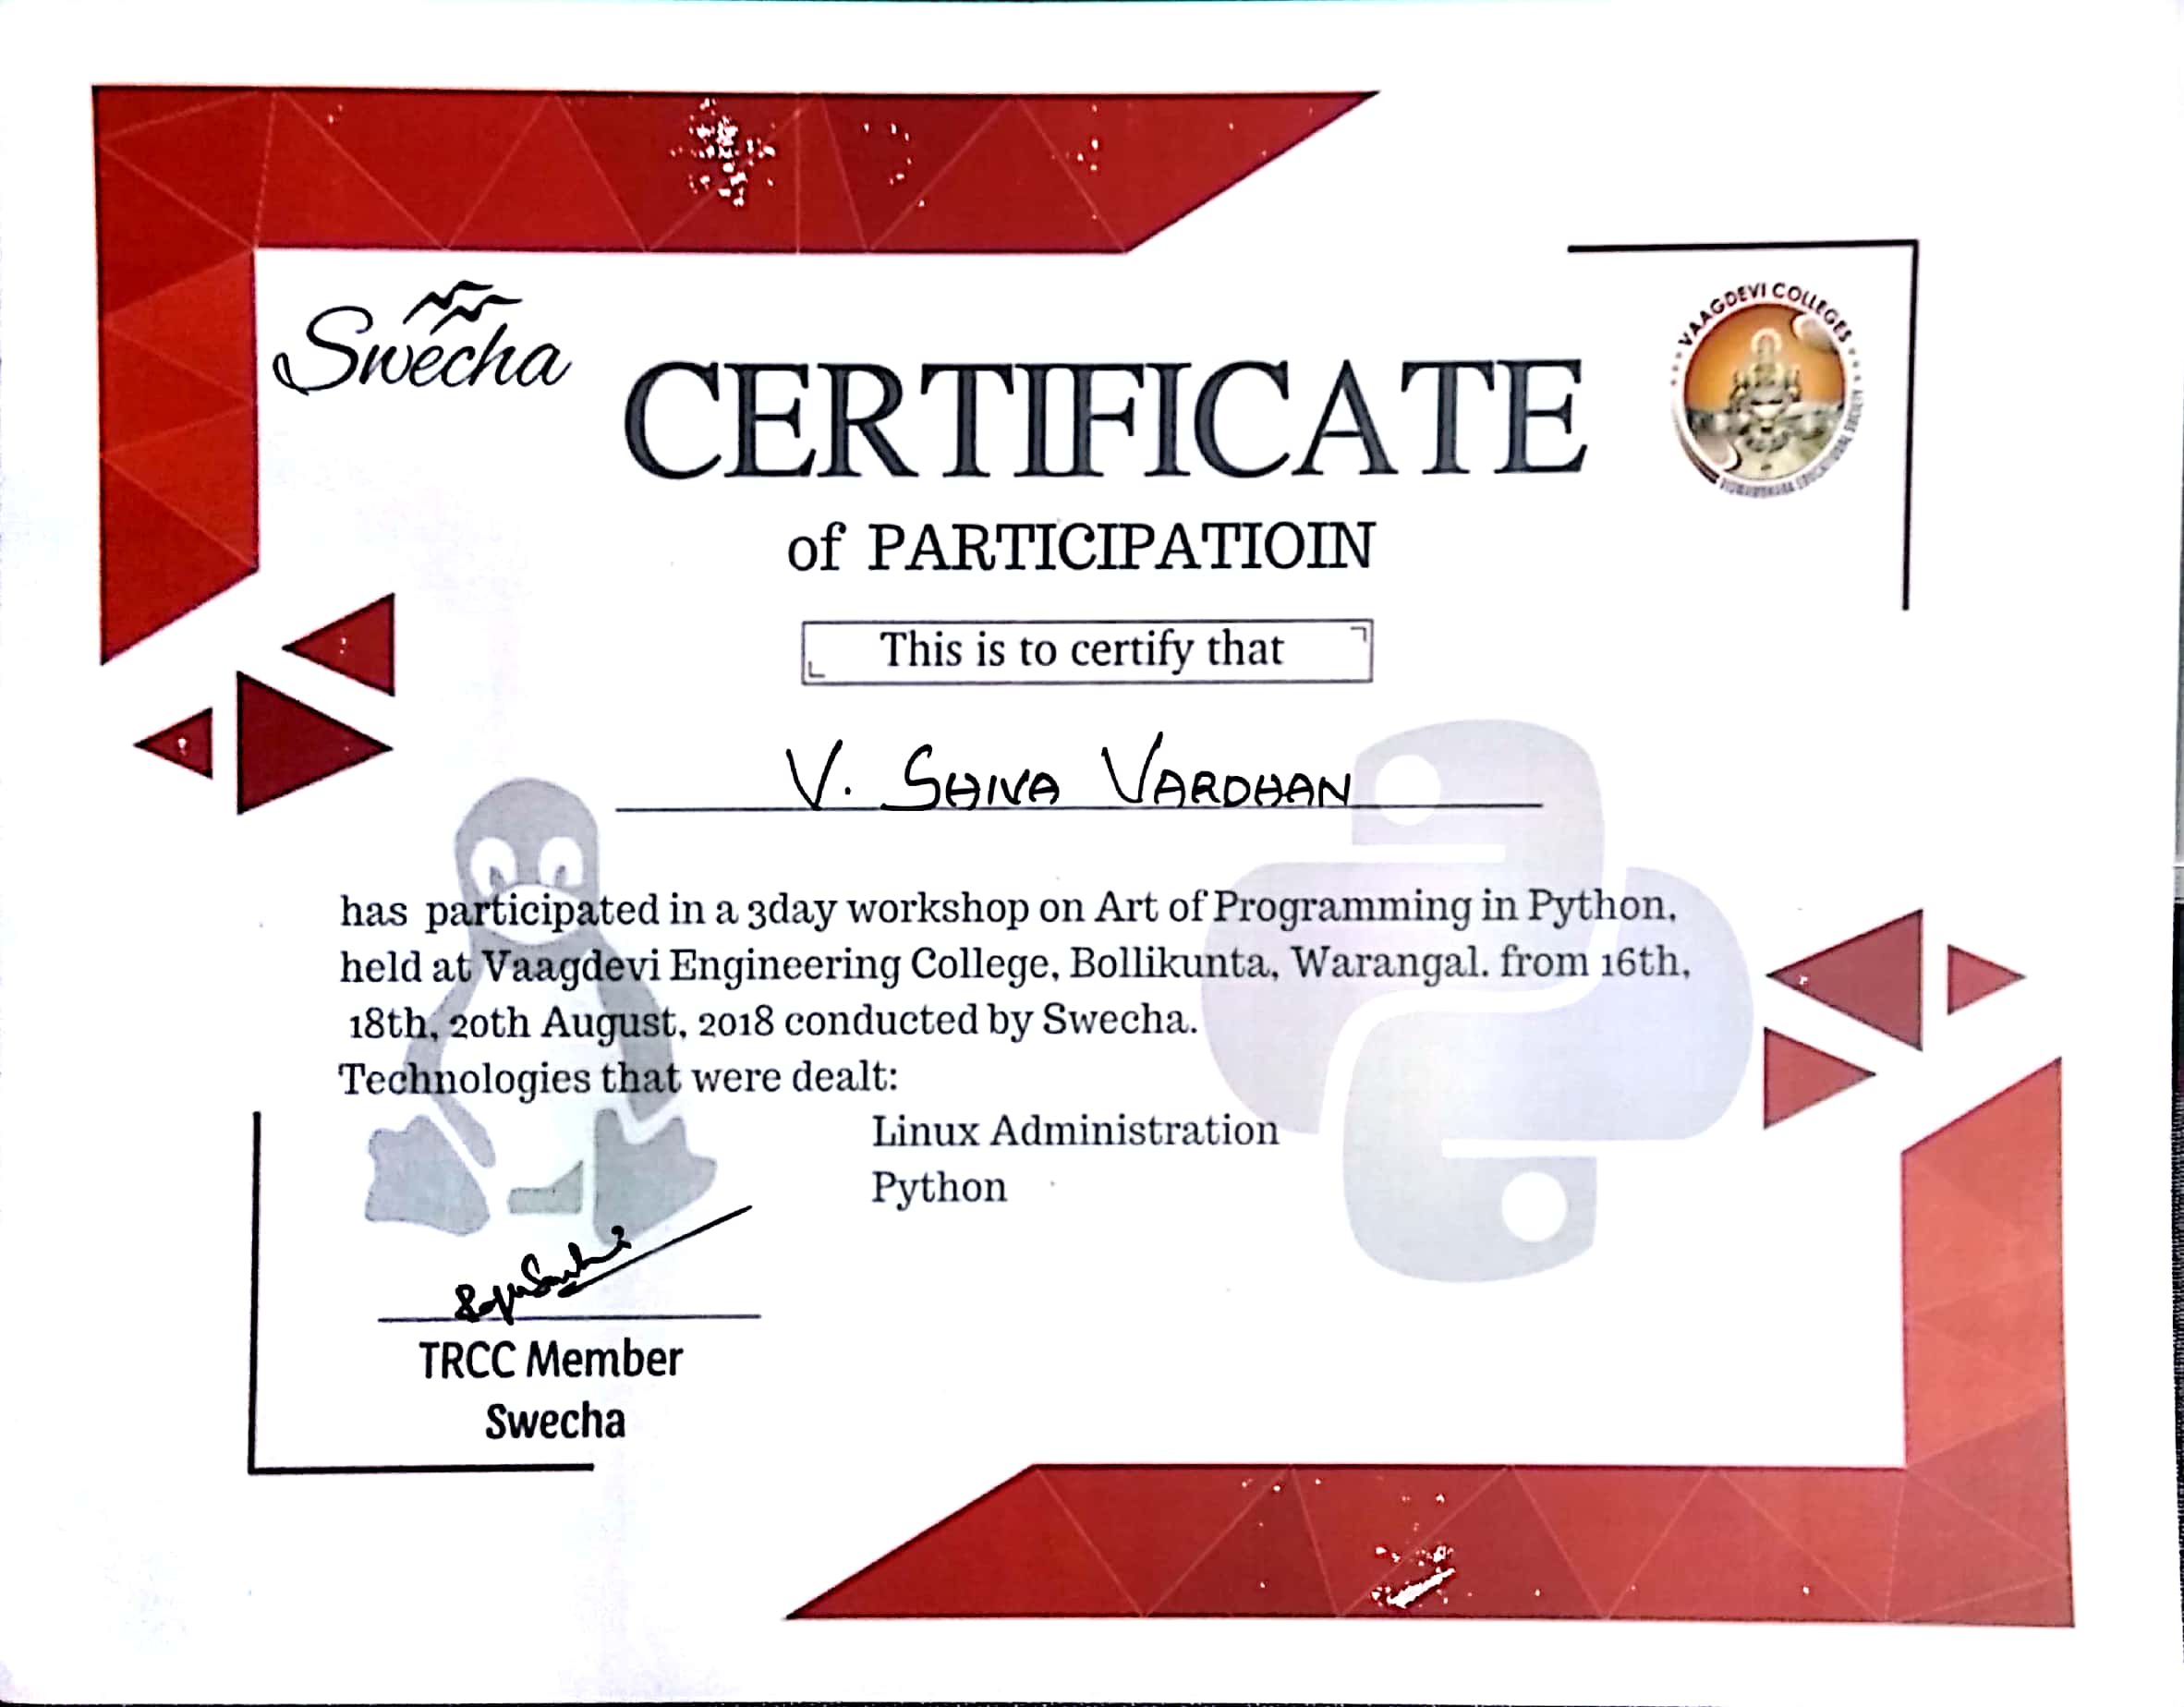 Swecha
VAAGDEVI COLLEGES
CERTIFICATE
of PARTICIPATIOIN
This is to certify that
V. SHIVA VARDHAN
has participated in a 3day workshop on Art of Programming in Python,
held at Vaagdevi Engineering College, Bollikunta, Warangal. from 16th,
18th, 20th August, 2018 conducted by Swecha.
Technologies that were dealt:
Linux Administration
Python
TRCC Member
Swecha